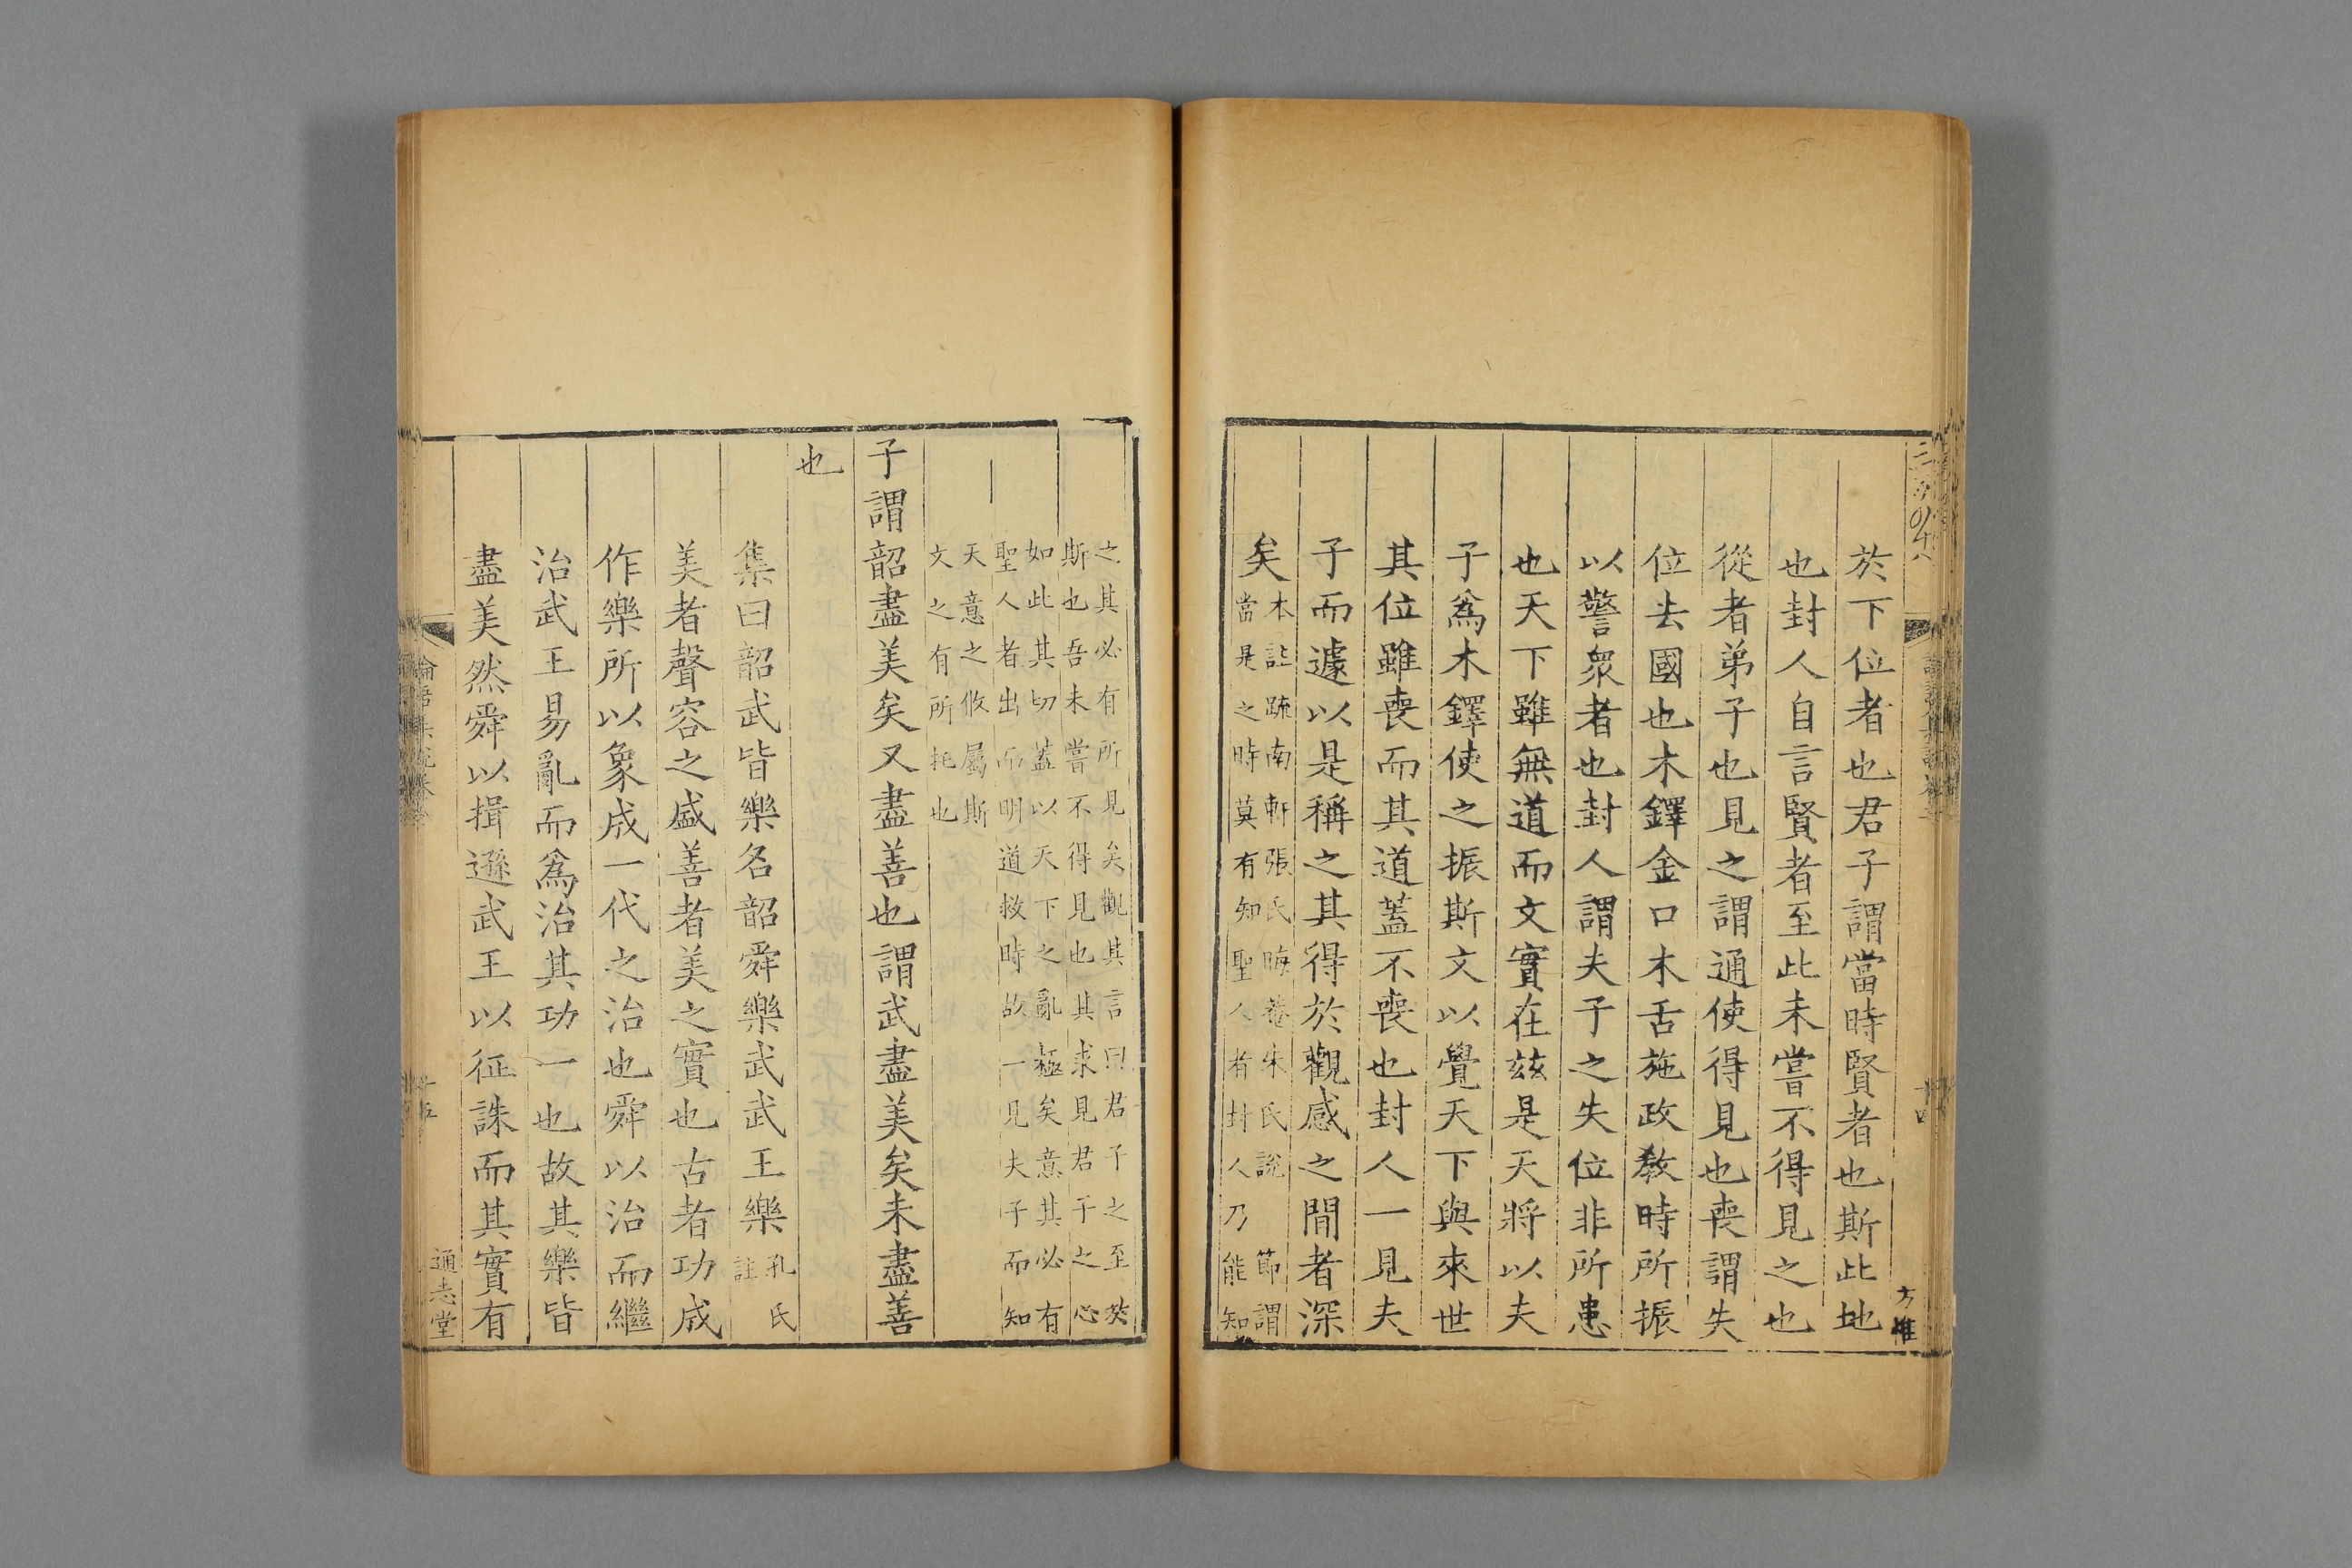 於下位者也君子謂當時賢者也斯此地
也封人自言賢者至此未嘗不得見之也
從者弟子也見之謂通使得見也喪謂失
位去國也木鐸金口木舌施政敎時所振
以警衆者也封人謂夫子之失位非所患
也天下雖無道而文實在茲是天將以夫
子爲木鐸使之振斯文以覺天下與來世
其位雖喪而其道蓋不喪也封人一見夫
子而遽以是稱之其得於觀感之間者深
矣本註疏南軒張氏晦菴朱氏說 節謂
當是之時莫有知聖人者封人乃能知
之其必有所見矣觀其言曰君子之至於
斯也吾未嘗不得見也其求見君子之心
如此其切蓋以天下之亂極矣意其必有
聖人者出而明道救時故一見夫子而知
天意之攸屬斯
文之有所托也
子謂韶盡美矣又盡善也謂武盡美矣未盡善
也
集曰韶武皆樂名韶舜樂武武王樂孔氏
註
美者聲容之盛善者美之實也古者功成
作樂所以象成一代之治也舜以治而繼
治武王易亂而爲治其功一也故其樂皆
盡美然舜以揖遜武王以征誅而其實有
論語集說卷
十五
通志堂